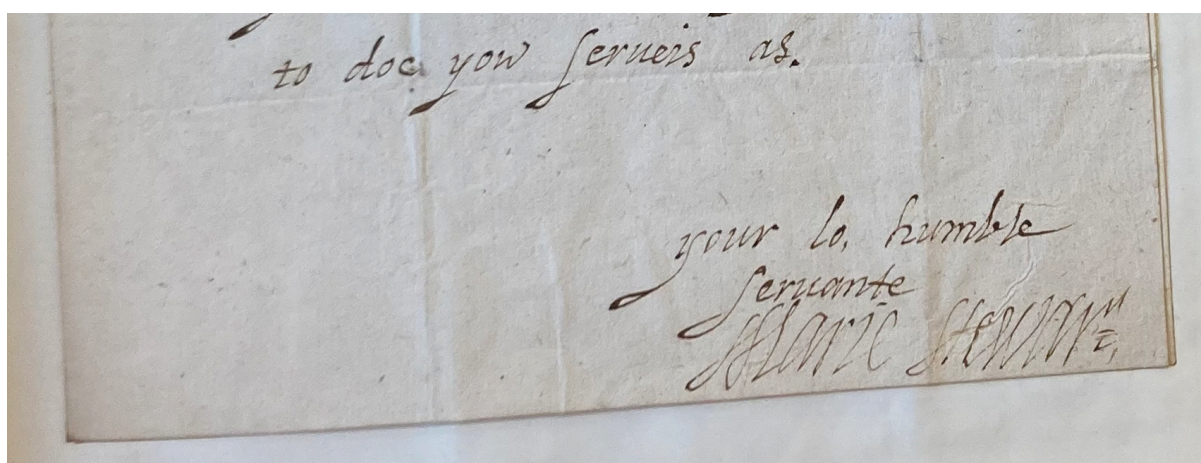 to doe yow serueis as.
your lo. humble
seruante
Marie Stewart